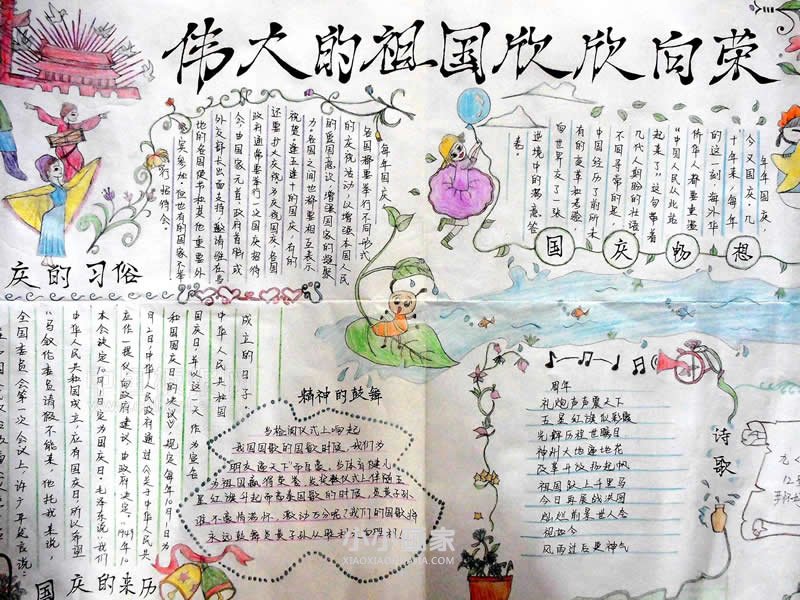 伟大的祖国欣欣向荣
每年国庆，
各国都要举行不同形式
的庆祝活动，以增强本国人民
的爱国意识，增强国家的凝聚
力。各国之间也都要相互表示
祝贺。逢五逢十的国庆，有的
还要扩大庆祝为庆祝国庆，各国
政府通常要举行一次国庆招待
会，由国家元首、政府首脑或
外交部长出面支持，邀请驻在当
地的各国使节和其他重要外
宾参加。但也有的国家不举
行招待会。
庆的习俗
年年国庆，
今又国庆，几
十年来，每年
的这一刻，海外华
侨华人都要重温
“中国人民从此站
起来了”这句带着
几代人期盼的壮语
不同寻常的是，
中国经历了前所未
有的变革和考验，
向世界交了一张
逆境中的满意答
卷。
国庆畅想
全国委员会第一次会议上，许广平发言说：
“马叙伦委员请假不能来，他托我来说，
中华人民共和国成立，应有国庆日，所以希望
本会决定10月1日定为国庆日。”毛泽东说：“我们
应作一提议向政府建议，由政府决定。”1949年10
月2日，中华人民政府通过《关于中华人民共
和国国庆日的决议》，规定每年10月1日为
国庆日，以这一天作为
中华人民共和国
成立的日子。
国庆的来历
精神的鼓舞
当检阅仪式上响起
我国国歌的国歌时庭，我们为
朋友遍天下而自豪，当体育健儿
为祖国赢得荣誉，发奖仪式上伴随五
星红旗升起而奏国歌的时候，炎黄子孙
谁不豪情满怀，激动万分呢？我们的国歌将
永远鼓舞炎黄子孙从胜利走向胜利！
周年
礼炮声声震天下
五星红旗似彩霞
光辉历程世瞩目
神州大地遍地花
改革开放扬起帆
祖国跃上千里马
今日再展战洪图
灿烂前景世人夸
风雨过后是神气
诗歌
小小画家
XIAOXIAOHUAJIA.COM